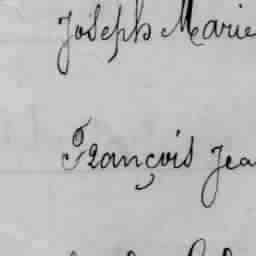 Joseph Marie
François Jea